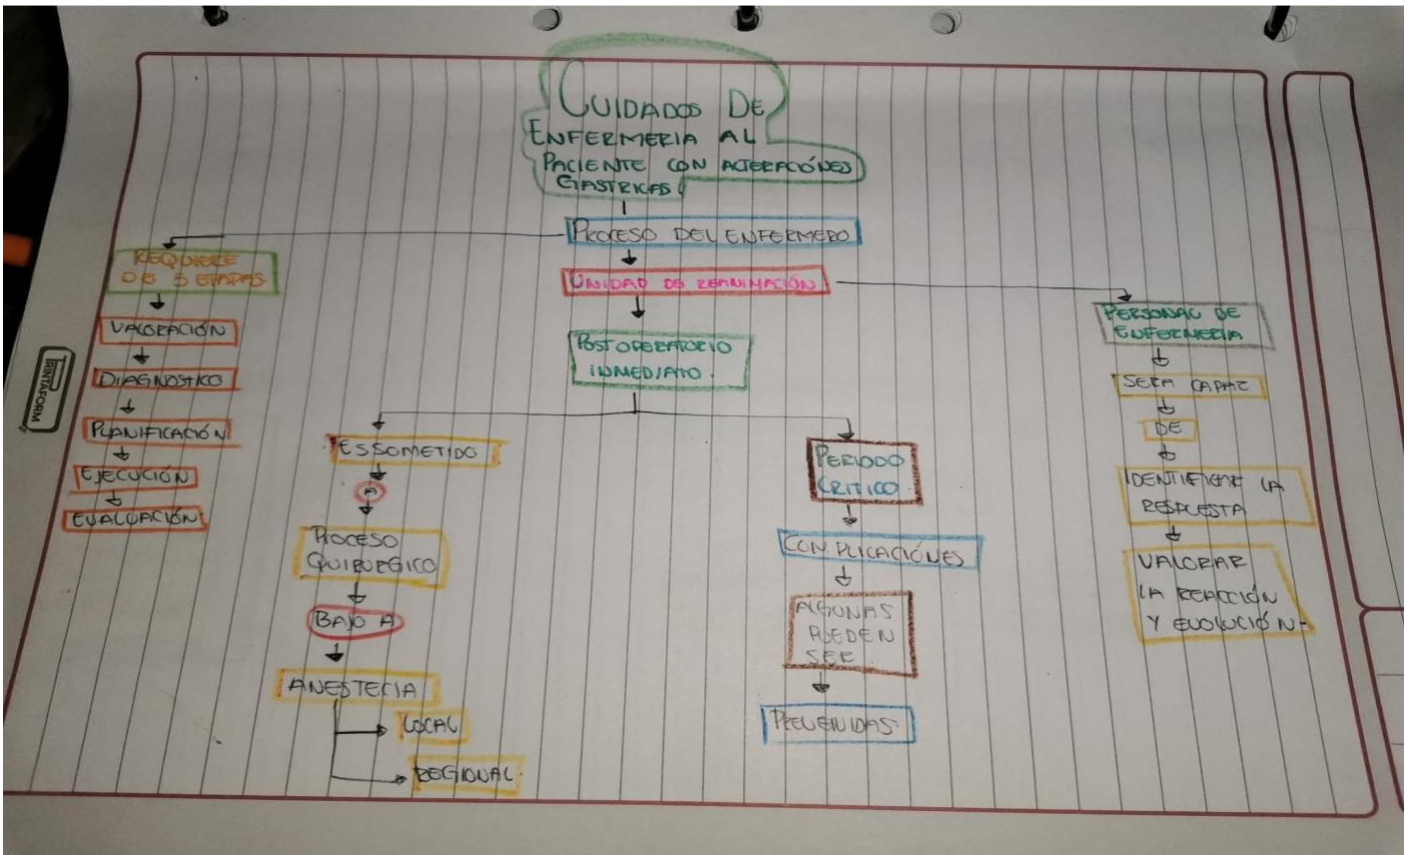 CUIDADOS DE
ENFERMERIA AL
PACIENTE CON ALTERACIÓNES
GASTRICAS
PROCESO DEL ENFERMERO
REQUIERE
DE 5 ETAPAS
VALORACIÓN
DIAGNOSTICO
PLANIFICACIÓN
EJECUCIÓN
EVALUACIÓN
UNIDAD DE REANIMACIÓN
POSTOPERATORIO
INMEDIATO.
ES SOMETIDO
A
PROCESO
QUIRURGICO
BAJO A
ANESTECIA
LOCAL
REGIONAL.
PERIODO
CRITICO
COMPLICACIÓNES
ALGUNAS
PUEDEN
SER
PREVENIDAS.
PERSONAL DE
ENFERMERIA
SERA CAPAZ
DE
IDENTIFICAR LA
RESPUESTA
VALORAR
LA REACCIÓN
Y EVOLUCIÓN.
PRINTAFORM